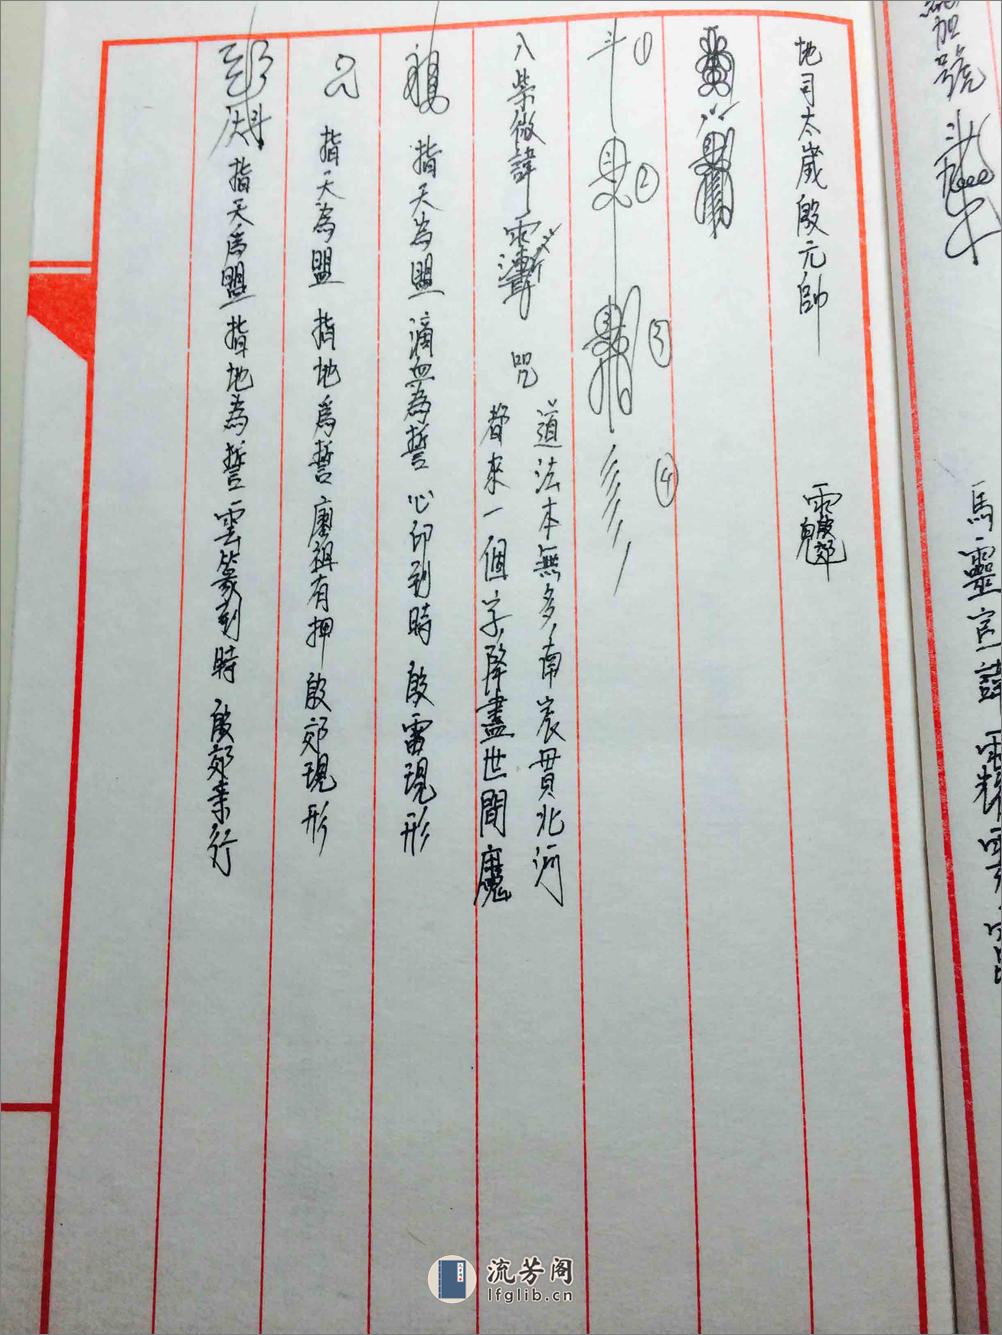 地司太歲殷元帥
①
②
③
④
入紫微諱
咒
道法本無多南宸貫北河
都來一個字降盡世間魔
指天為盟 滴血為誓 心印到時 殷雷現形
指天為盟 指地為誓 唐祖有押 殷郊現形
指天為盟 指地為誓 雲篆到時 殷郊奉行
加號
馬靈官諱
流芳阁
lfglib.cn